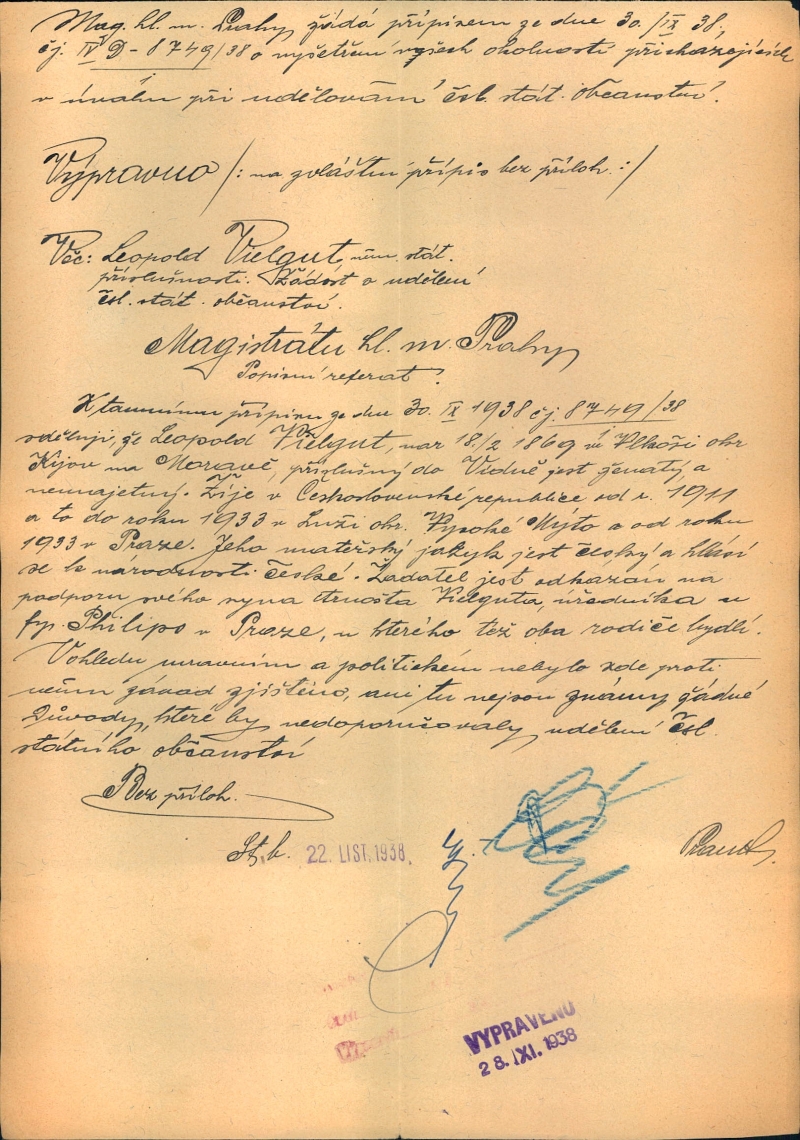 Mag. hl. m. Prahy žádá přípisem ze dne 30./IX 38.,
čj. IV D - 8749/38 o vyšetření všech okolností přicházejících
v úvahu při udělování čsl. stát. občanství.
Výpravna /: na zvláštní přípis bez příloh. :/
Věc: Leopold Vielgut, něm. stát.
příslušnosti. Žádost o udělení
čsl. stát. občanství.
Magistrátu hl. m. Prahy
Popisní referát.
K tamnímu přípisu ze dne 30. IX 1938 čj. 8749/38
sděluji, že Leopold Vielgut, nar 18./2 1869 v Vlkoši okr
Kijov na Moravě, příslušný do Vídně jest ženatý a
nemajetný. Žije v Československé republice od r. 1911
a to do roku 1933 v Luži okr. Vysoké Mýto a od roku
1933 v Praze. Jeho mateřský jazyk jest český a hlásí
se k národnosti české. Žadatel jest odkázán na
podporu svého syna Arnošta Vielguta, úředníka u
fy. Philips v Praze, u kterého též oba rodiče bydlí.
Vohledu mravním a politickém nebylo zde proti
něm závad zjištěno, ani tu nejsou známy žádné
Důvody, které by nedoporučovaly udělení čsl.
státního občanství
Bez příloh.
St. b. 22. LIST. 1938.
VYPRAVENO
28. XI. 1938